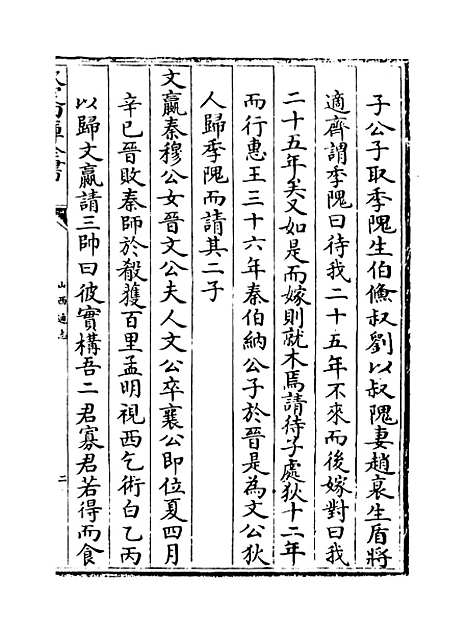 子公子取季隗生伯鯈叔劉以叔隗妻趙衰生盾將
適齊謂季隗曰待我二十五年不來而後嫁對曰我
二十五年矣又如是而嫁則就木焉請待子處狄十二年
而行惠王三十六年秦伯納公子於晉是為文公狄
人歸季隗而請其二子
文嬴秦穆公女晉文公夫人文公卒襄公即位夏四月
辛巳晉敗秦師於殽獲百里孟明視西乞術白乙丙
以歸文嬴請三帥曰彼實構吾二君寡君若得而食
山西通志
二